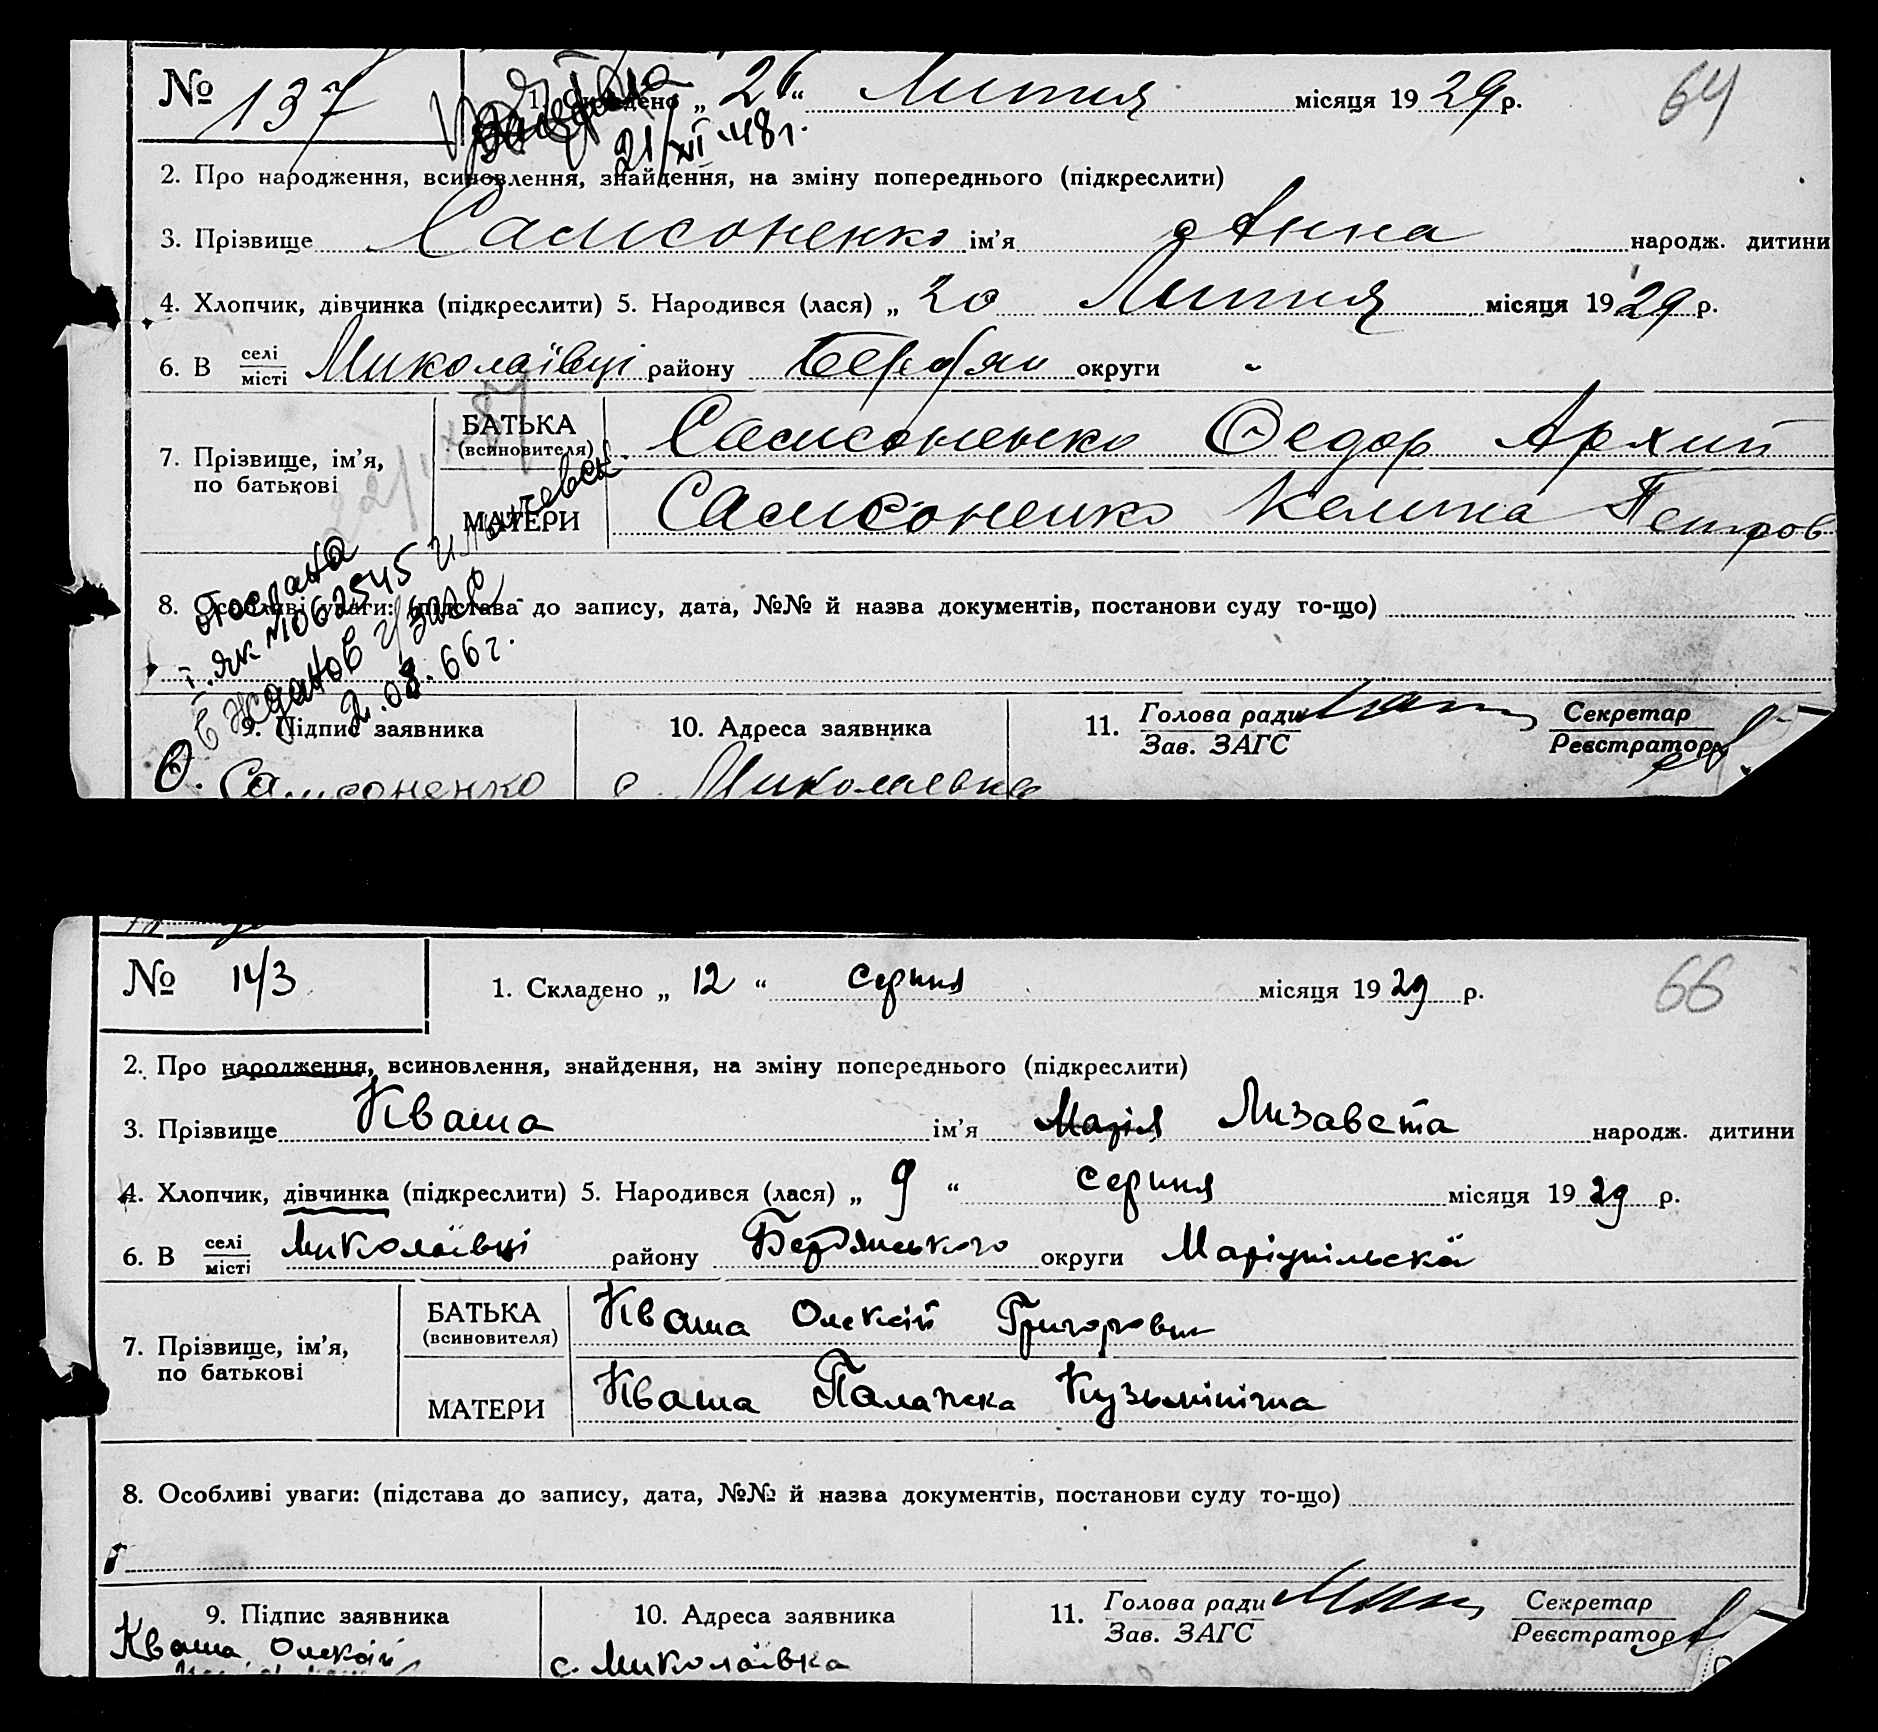 № 137
1. Складено „ 26 “ Липня місяця 1929 р.
64
21/XI 48 г.
2. Про народження, всиновлення, знайдення, на зміну попереднього (підкреслити)
3. Прізвище Самсоненко ім'я Анна народж. дитини
4. Хлопчик, дівчинка (підкреслити) 5. Народився (лася) „ 20 Липня місяця 1929 р.
6. В селі/місті Миколаївці району Бердян округи
7. Прізвище, ім'я, по батькові
БАТЬКА (всиновителя) Самсоненко Федор Архип
МАТЕРИ Самсоненко Келина Петров
8. Особливі уваги: (підстава до запису, дата, №№ й назва документів, постанови суду то-що)
отослана
№1062545
в Жданов г/загс
2.08.66 г.
9. Підпис заявника
10. Адреса заявника
11. Голова ради
Зав. ЗАГС
Секретар
Реєстратор
О. Самсоненко
с. Миколаевка
№ 143
1. Складено „ 12 “ серпня місяця 1929 р.
66
2. Про народження, всиновлення, знайдення, на зміну попереднього (підкреслити)
3. Прізвище Кваша ім'я Марія Лизавета народж. дитини
4. Хлопчик, дівчинка (підкреслити) 5. Народився (лася) „ 9 “ серпня місяця 1929 р.
6. В селі/місті Миколаївці району Бердянського округи Маріупільскої
7. Прізвище, ім'я, по батькові
БАТЬКА (всиновителя) Кваша Олексій Григорович
МАТЕРИ Кваша Палажка Кузьмінічна
8. Особливі уваги: (підстава до запису, дата, №№ й назва документів, постанови суду то-що)
9. Підпис заявника
10. Адреса заявника
11. Голова ради
Зав. ЗАГС
Секретар
Реєстратор
Кваша Олексій
с. Миколаївка